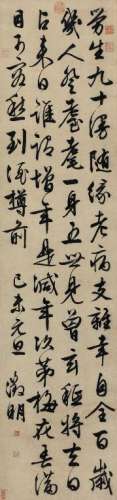 勞生九十漫隨緣老病支離幸自全百歲
幾人登耄耋一身五世見曾玄秪將去日
占來日誰謂增年是減年次第梅花春滿
目可容愁到酒樽前 己未元旦 徵明